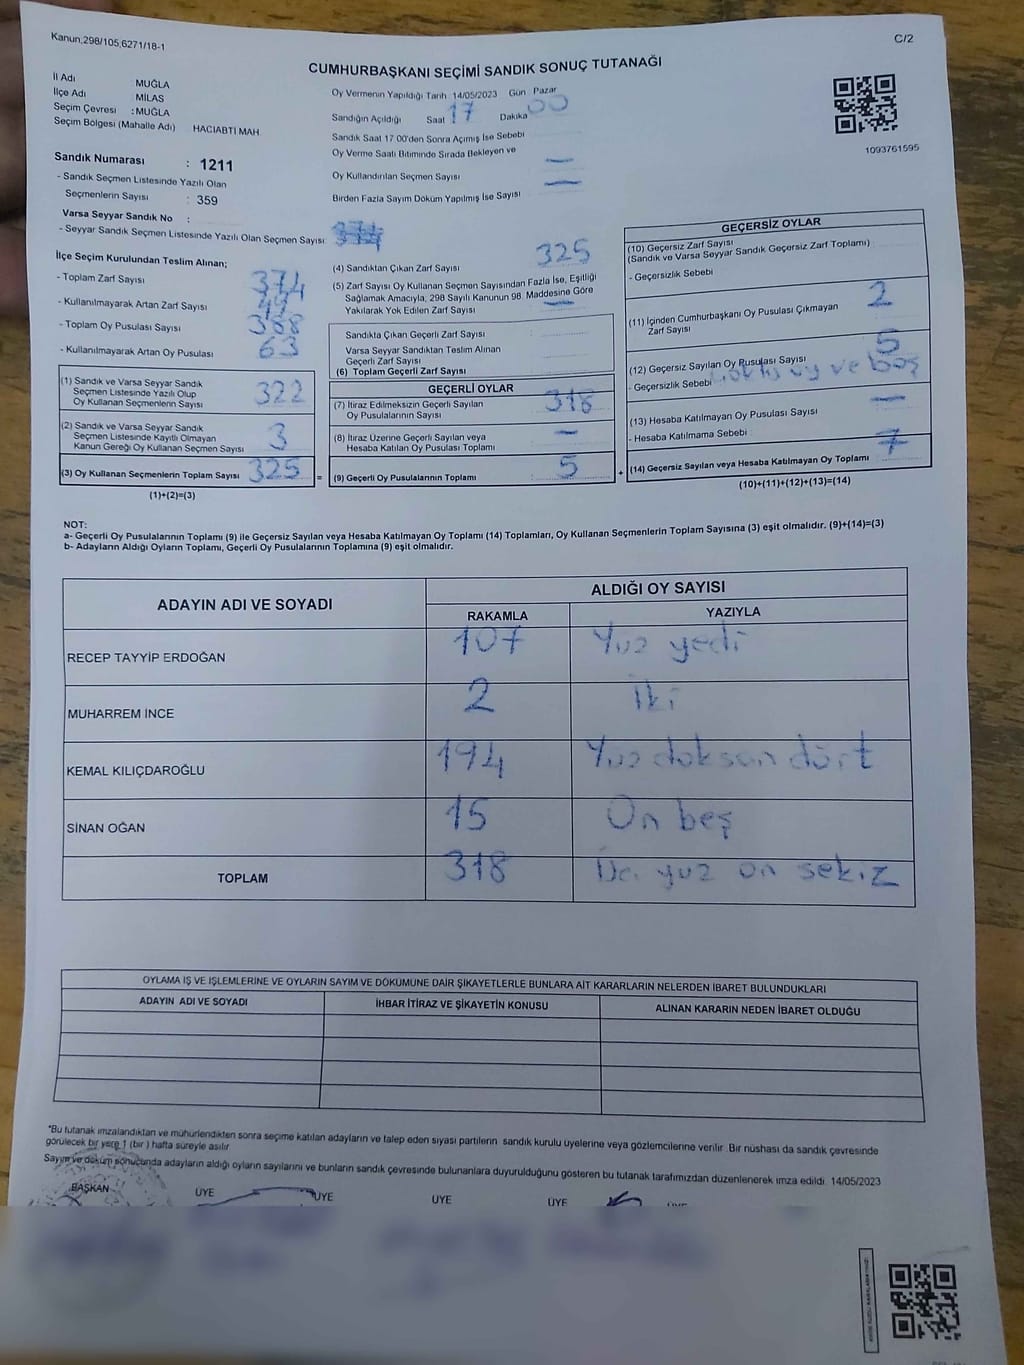 Kanun;298/105,6271/18-1
C/2
CUMHURBAŞKANI SEÇİMİ SANDIK SONUÇ TUTANAĞI
İl Adı MUĞLA
İlçe Adı MİLAS
Seçim Çevresi : MUĞLA
Seçim Bölgesi (Mahalle Adı) HACIABTİ MAH.
Sandık Numarası : 1211
- Sandık Seçmen Listesinde Yazılı Olan
Seçmenlerin Sayısı : 359
Varsa Seyyar Sandık No :
- Seyyar Sandık Seçmen Listesinde Yazılı Olan Seçmen Sayısı
Oy Vermenin Yapıldığı Tarih 14/05/2023 Gün Pazar
Sandığın Açıldığı Saat 17 Dakika 00
Sandık Saat 17 00'den Sonra Açımış İse Sebebi
Oy Verme Saati Bitiminde Sırada Bekleyen ve
Oy Kullandırılan Seçmen Sayısı —
Birden Fazla Sayım Döküm Yapılmış İse Sayısı —
1093761595
İlçe Seçim Kurulundan Teslim Alınan;
- Toplam Zarf Sayısı 374
- Kullanılmayarak Artan Zarf Sayısı
- Toplam Oy Pusulası Sayısı
- Kullanılmayarak Artan Oy Pusulası 63
(1) Sandık ve Varsa Seyyar Sandık
Seçmen Listesinde Yazılı Olup
Oy Kullanan Seçmenlerin Sayısı 322
(2) Sandık ve Varsa Seyyar Sandık
Seçmen Listesinde Kayıtlı Olmayan
Kanun Gereği Oy Kullanan Seçmen Sayısı 3
(3) Oy Kullanan Seçmenlerin Toplam Sayısı 325 =
(1)+(2)=(3)
(4) Sandıktan Çıkan Zarf Sayısı 325
(5) Zarf Sayısı Oy Kullanan Seçmen Sayısından Fazla İse, Eşitliği
Sağlamak Amacıyla, 298 Sayılı Kanunun 98. Maddesine Göre
Yakılarak Yok Edilen Zarf Sayısı —
Sandıkta Çıkan Geçerli Zarf Sayısı :
Varsa Seyyar Sandıktan Teslim Alınan
Geçerli Zarf Sayısı :
(6) Toplam Geçerli Zarf Sayısı :
GEÇERLİ OYLAR
(7) İtiraz Edilmeksizin Geçerli Sayılan
Oy Pusulalarının Sayısı 318
(8) İtiraz Üzerine Geçerli Sayılan veya
Hesaba Katılan Oy Pusulası Toplamı —
(9) Geçerli Oy Pusulalarının Toplamı 5 +
GEÇERSİZ OYLAR
(10) Geçersiz Zarf Sayısı
(Sandık ve Varsa Seyyar Sandık Geçersiz Zarf Toplamı)
- Geçersizlik Sebebi
(11) İçinden Cumhurbaşkanı Oy Pusulası Çıkmayan
Zarf Sayısı 2
(12) Geçersiz Sayılan Oy Pusulası Sayısı 5
- Geçersizlik Sebebi oy ve boş
(13) Hesaba Katılmayan Oy Pusulası Sayısı —
- Hesaba Katılmama Sebebi :
(14) Geçersiz Sayılan veya Hesaba Katılmayan Oy Toplamı 7
(10)+(11)+(12)+(13)=(14)
NOT:
a- Geçerli Oy Pusulalarının Toplamı (9) ile Geçersiz Sayılan veya Hesaba Katılmayan Oy Toplamı (14) Toplamları, Oy Kullanan Seçmenlerin Toplam Sayısına (3) eşit olmalıdır. (9)+(14)=(3)
b- Adayların Aldığı Oyların Toplamı, Geçerli Oy Pusulalarının Toplamına (9) eşit olmalıdır.
ADAYIN ADI VE SOYADI ALDIĞI OY SAYISI
RAKAMLA YAZIYLA
RECEP TAYYİP ERDOĞAN 107 Yuz yedi
MUHARREM İNCE 2 İki
KEMAL KILIÇDAROĞLU 194 Yuz doksan dört
SİNAN OĞAN 15 On beş
TOPLAM 318 yuz on sekiz
OYLAMA İŞ VE İŞLEMLERİNE VE OYLARIN SAYIM VE DÖKÜMÜNE DAİR ŞİKAYETLERLE BUNLARA AİT KARARLARIN NELERDEN İBARET BULUNDUKLARI
ADAYIN ADI VE SOYADI İHBAR İTİRAZ VE ŞİKAYETİN KONUSU ALINAN KARARIN NEDEN İBARET OLDUĞU
*Bu tutanak imzalandıktan ve mühürlendikten sonra seçime katılan adayların ve talep eden siyasi partilerin sandık kurulu üyelerine veya gözlemcilerine verilir. Bir nüshası da sandık çevresinde
görülecek bir yere 1 (bir ) hafta süreyle asılır
Sayım ve döküm sonucunda adayların aldığı oyların sayılarını ve bunların sandık çevresinde bulunanlara duyurulduğunu gösteren bu tutanak tarafımızdan düzenlenerek imza edildi. 14/05/2023
BAŞKAN ÜYE ÜYE ÜYE ÜYE